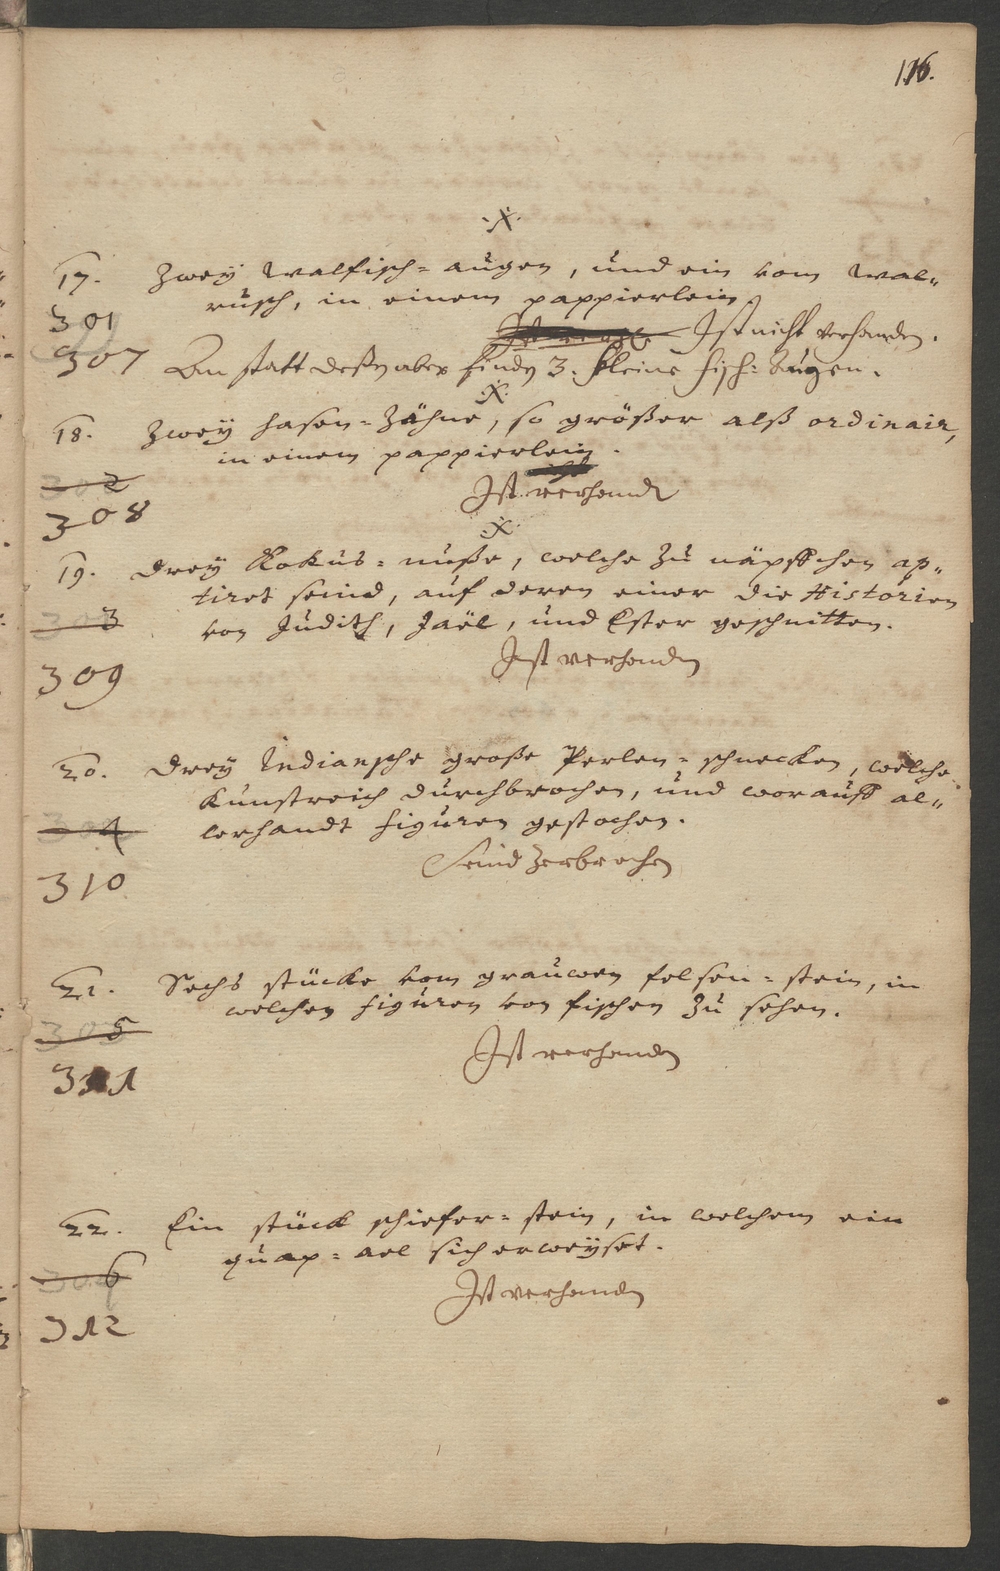 116.
.X.
17. Zweÿ Walfisch= augen, und ein vom Wal„
rusch, in einem pappierlein.
301
Ist nicht verhanden.
307 An statt deßen aber finden 3. kleine fisch= Augen.
.X.
18. Zweÿ hasen= Zähne, so größer alß ordinair,
in einem pappierlein.
302
Ist verhanden
308
.X.
19. Dreÿ Kokus= nuße, welche zu näpffchen ap„
tiret seind, auf deren einer die Historien
303 von Judith, Jaël, und Ester geschnitten.
Ist verhanden
309
20. Dreÿ Indiansche große Perlen= schnecken, welche
kunstreich durchbrochen, und worauff al„
304 lerhandt figuren gestochen.
Seind zerbrochen
310
21. Sechs stücke vom grauwen felsen= stein, in
welchen figuren von fischen zu sehen.
305
Ist verhanden
311
22. Ein stück schiefer= stein, in welchem ein
quap= ael sich erweÿset.
306
Ist verhanden
312